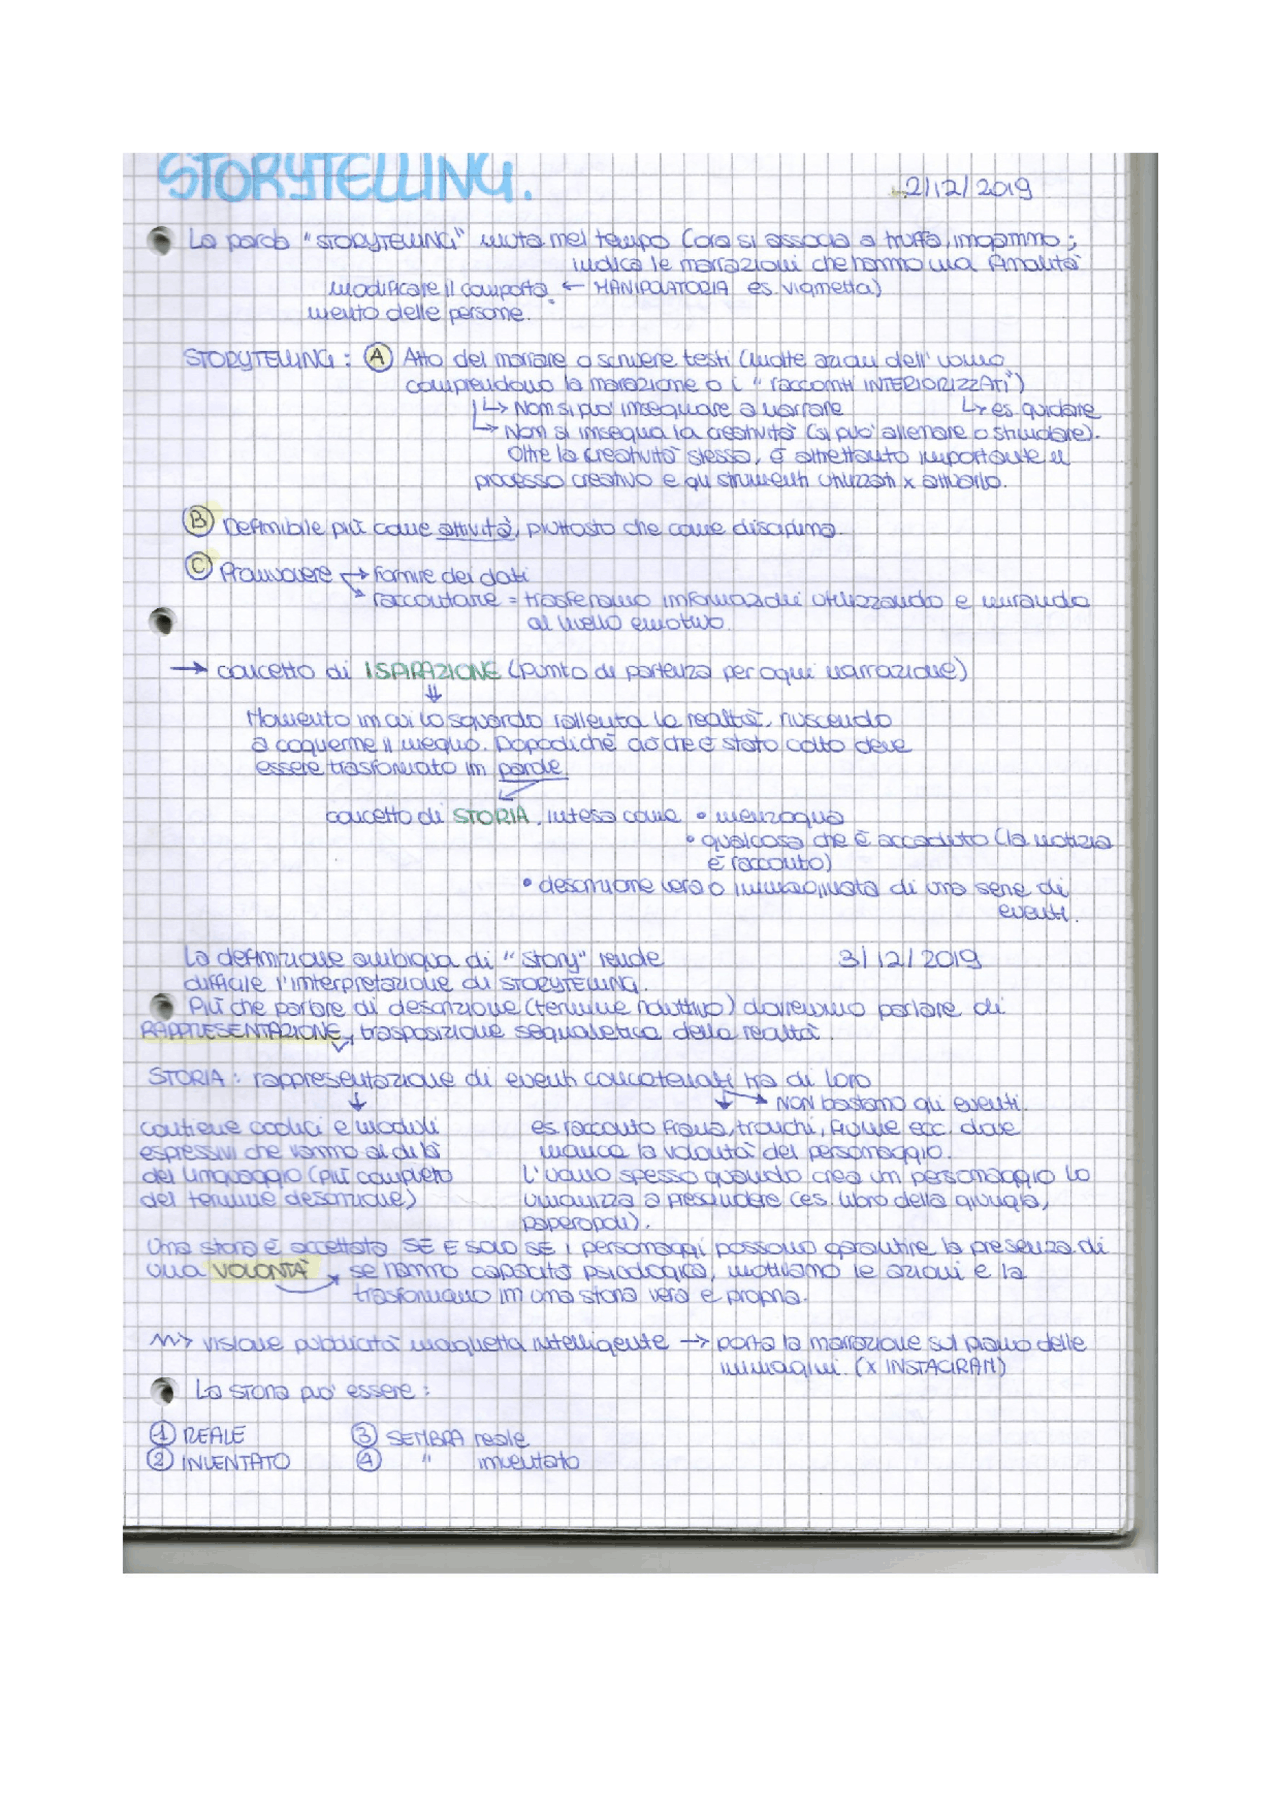 STORYTELLING.
2/12/2019
La parola "STORYTELLING" muta nel tempo (ora si associa a truffa, inganno;
indica le narrazioni che hanno una finalità
modificare il comporta- ← MANIPOLATORIA es. vignetta)
mento delle persone.
STORYTELLING: A Atto del narrare o scrivere testi (molte azioni dell'uomo
comprendono la narrazione o i "racconti INTERIORIZZATI")
↳ Non si può insegnare a narrare ↳ es. guidare
↳ Non si insegna la creatività (si può allenare o stimolare).
Oltre la creatività stessa, è altrettanto importante il
processo creativo e gli strumenti utilizzati x attivarlo.
B Definibile più come attività, piuttosto che come disciplina.
C Promuovere → fornire dei dati
→ raccontare = trasferiamo informazioni utilizzando e mirando
al livello emotivo.
→ concetto di ISPIRAZIONE (punto di partenza per ogni narrazione)
⇓
Momento in cui lo sguardo rallenta la realtà, riuscendo
a coglierne il meglio. Dopodiché ciò che è stato colto deve
essere trasformato in parole
concetto di STORIA, intesa come • menzogna
• qualcosa che è accaduto (la notizia
è racconto)
• descrizione vera o immaginata di una serie di
eventi.
La definizione ambigua di "story" rende
3/12/2019
difficile l'interpretazione di STORYTELLING.
Più che parlare di descrizione (termine riduttivo) dovremmo parlare di
RAPPRESENTAZIONE, trasposizione segnaletica della realtà.
STORIA: rappresentazione di eventi concatenati tra di loro
↓ ↓ → NON bastano gli eventi.
contiene codici e moduli
espressivi che vanno al di là
del linguaggio (più completo
del termine descrizione)
es. racconto frana, tronchi, fiume ecc. dove
manca la volontà del personaggio.
L'uomo spesso quando crea un personaggio lo
umanizza a prescindere (es. libro della giungla,
paperopoli).
Una storia è accettata SE E SOLO SE i personaggi possono garantire la presenza di
una VOLONTÀ → se hanno capacità psicologica, motivano le azioni e la
trasformano in una storia vera e propria.
⇝ visione pubblicità maglietta intelligente → porta la narrazione sul piano delle
immagini. (x INSTAGRAM)
La storia può essere:
1 REALE 3 SEMBRA reale
2 INVENTATO 4 " inventato